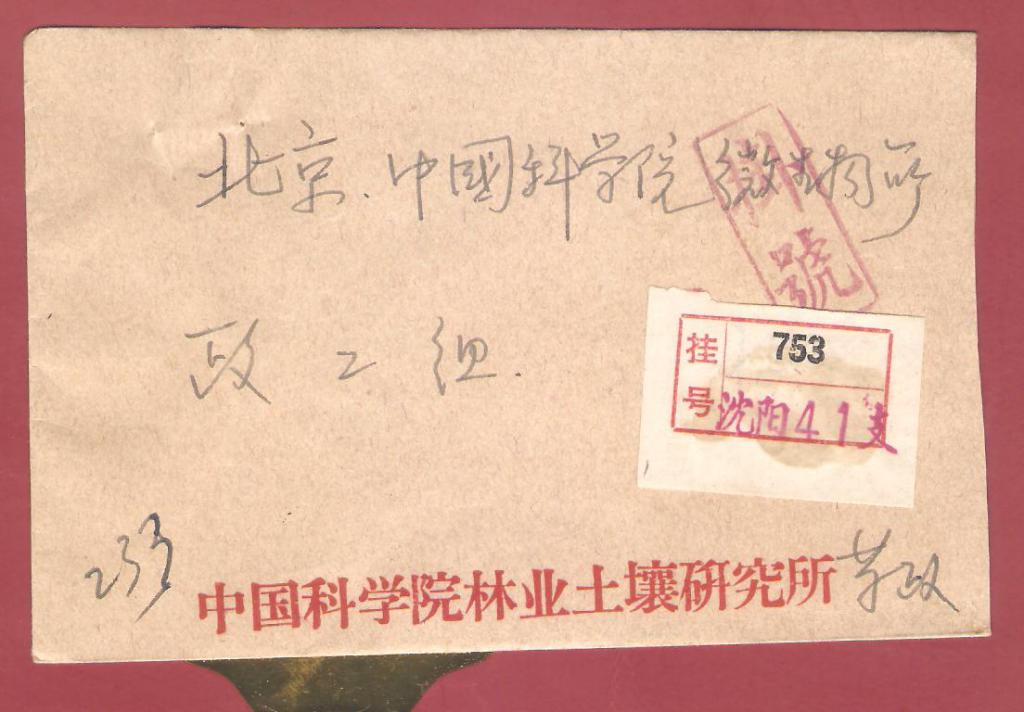 北京.中國科学院微生物所
挂號
政工组.
挂号
753
沈阳41支
中国科学院林业土壤研究所